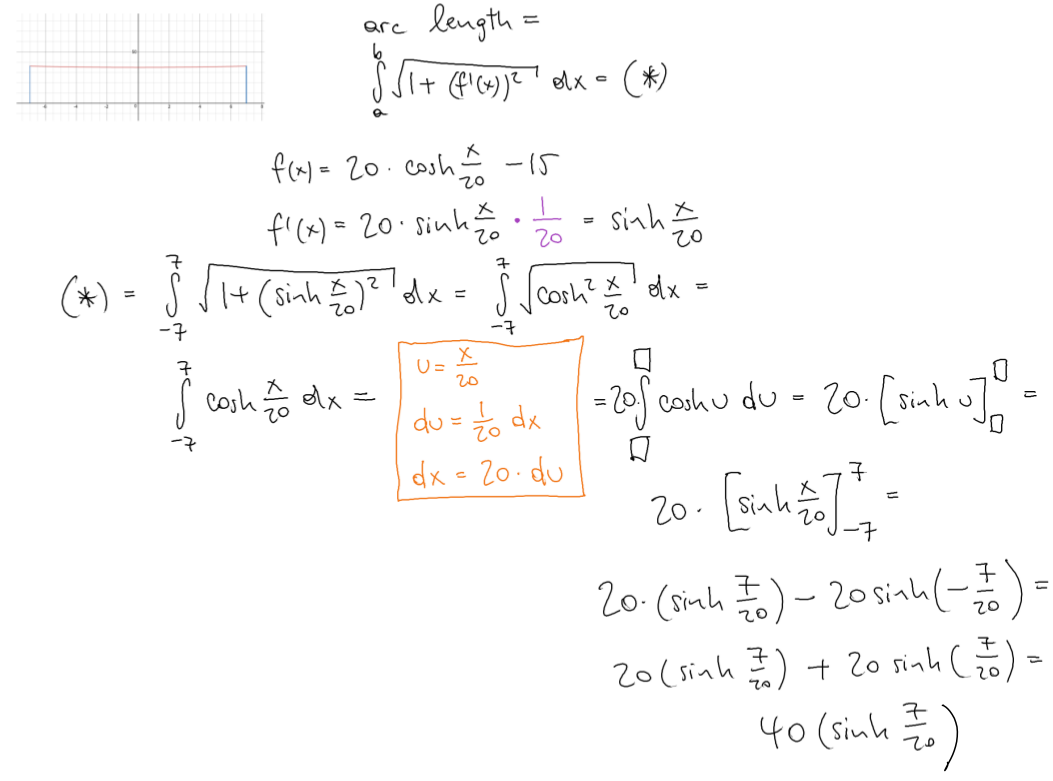 arc length =
∫_a^b √(1 + (f'(x))²) dx = (*)
f(x) = 20 · cosh x/20 − 15
f'(x) = 20 · sinh x/20 · 1/20 = sinh x/20
(*) = ∫_{-7}^{7} √(1 + (sinh x/20)²) dx = ∫_{-7}^{7} √(cosh² x/20) dx =
∫_{-7}^{7} cosh x/20 dx =
u = x/20
du = 1/20 dx
dx = 20 · du
= 20 · ∫_□^□ cosh u du = 20 · [sinh u]_□^□ =
20 · [sinh x/20]_{-7}^{7} =
20 · (sinh 7/20) − 20 sinh (−7/20) =
20 (sinh 7/20) + 20 sinh (7/20) =
40 (sinh 7/20)